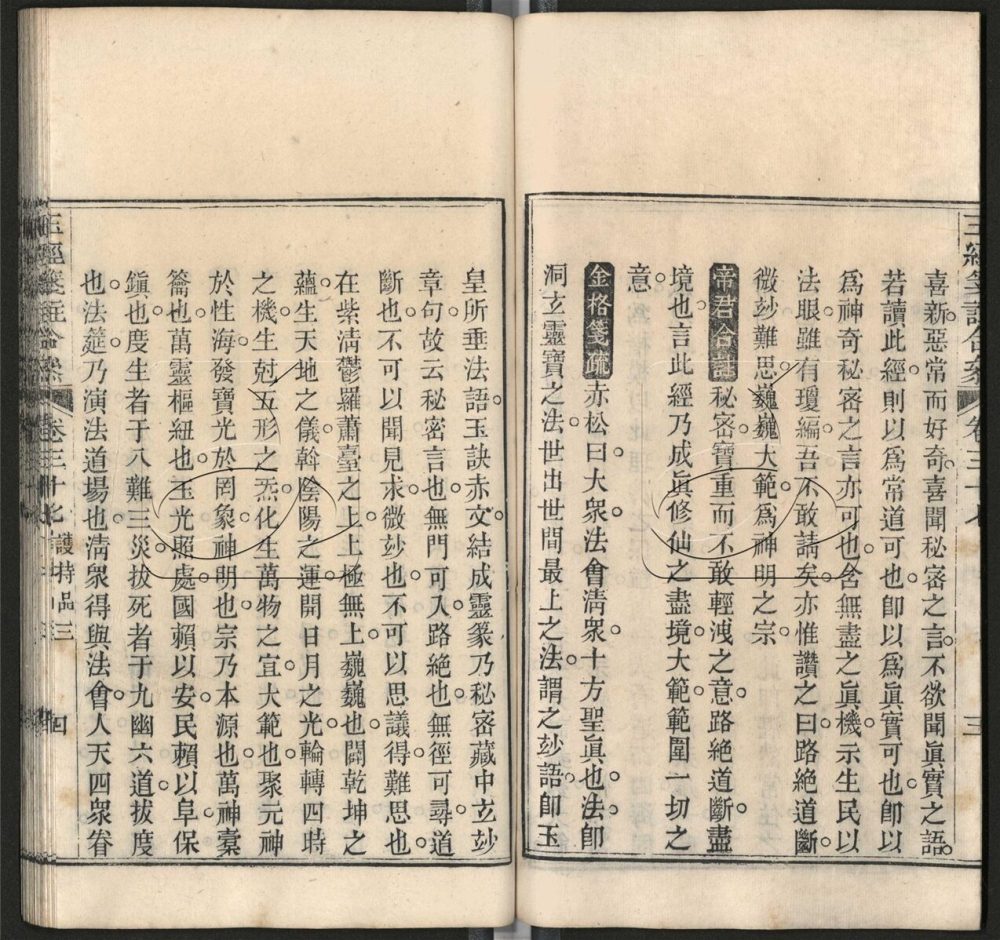 喜新惡常而好奇喜聞秘密之言不欲聞眞實之語
若讀此經則以爲常道可也卽以爲眞實可也卽以
爲神奇秘密之言亦可也含無盡之眞機示生民以
法眼雖有瓊編吾不敢請矣亦惟讚之曰路絶道斷
微玅難思巍巍大範爲神明之宗
帝君合註秘密寶重而不敢輕洩之意路絶道斷盡
境也言此經乃成眞修仙之盡境大範範圍一切之
意
金格箋疏赤松曰大衆法會淸衆十方聖眞也法卽
洞玄靈寶之法世出世間最上之法謂之玅語卽玉
三
皇所垂法語玉訣赤文結成靈篆乃秘密藏中玄玅
章句故云秘密言也無門可入路絶也無徑可尋道
斷也不可以聞見求微玅也不可以思議得難思也
在紫淸鬱羅蕭臺之上上極無上巍巍也闢乾坤之
蘊生天地之儀斡陰陽之運開日月之光輪轉四時
之機生尅五形之炁化生萬物之宜大範也聚元神
於性海發寶光於罔象神明也宗乃本源也萬神橐
籥也萬靈樞紐也玉光照處國賴以安民賴以阜保
鎭也度生者于八難三災拔死者于九幽六道拔度
也法筵乃演法道場也淸衆得與法會人天四衆眷
卷三十七 護持品三 四